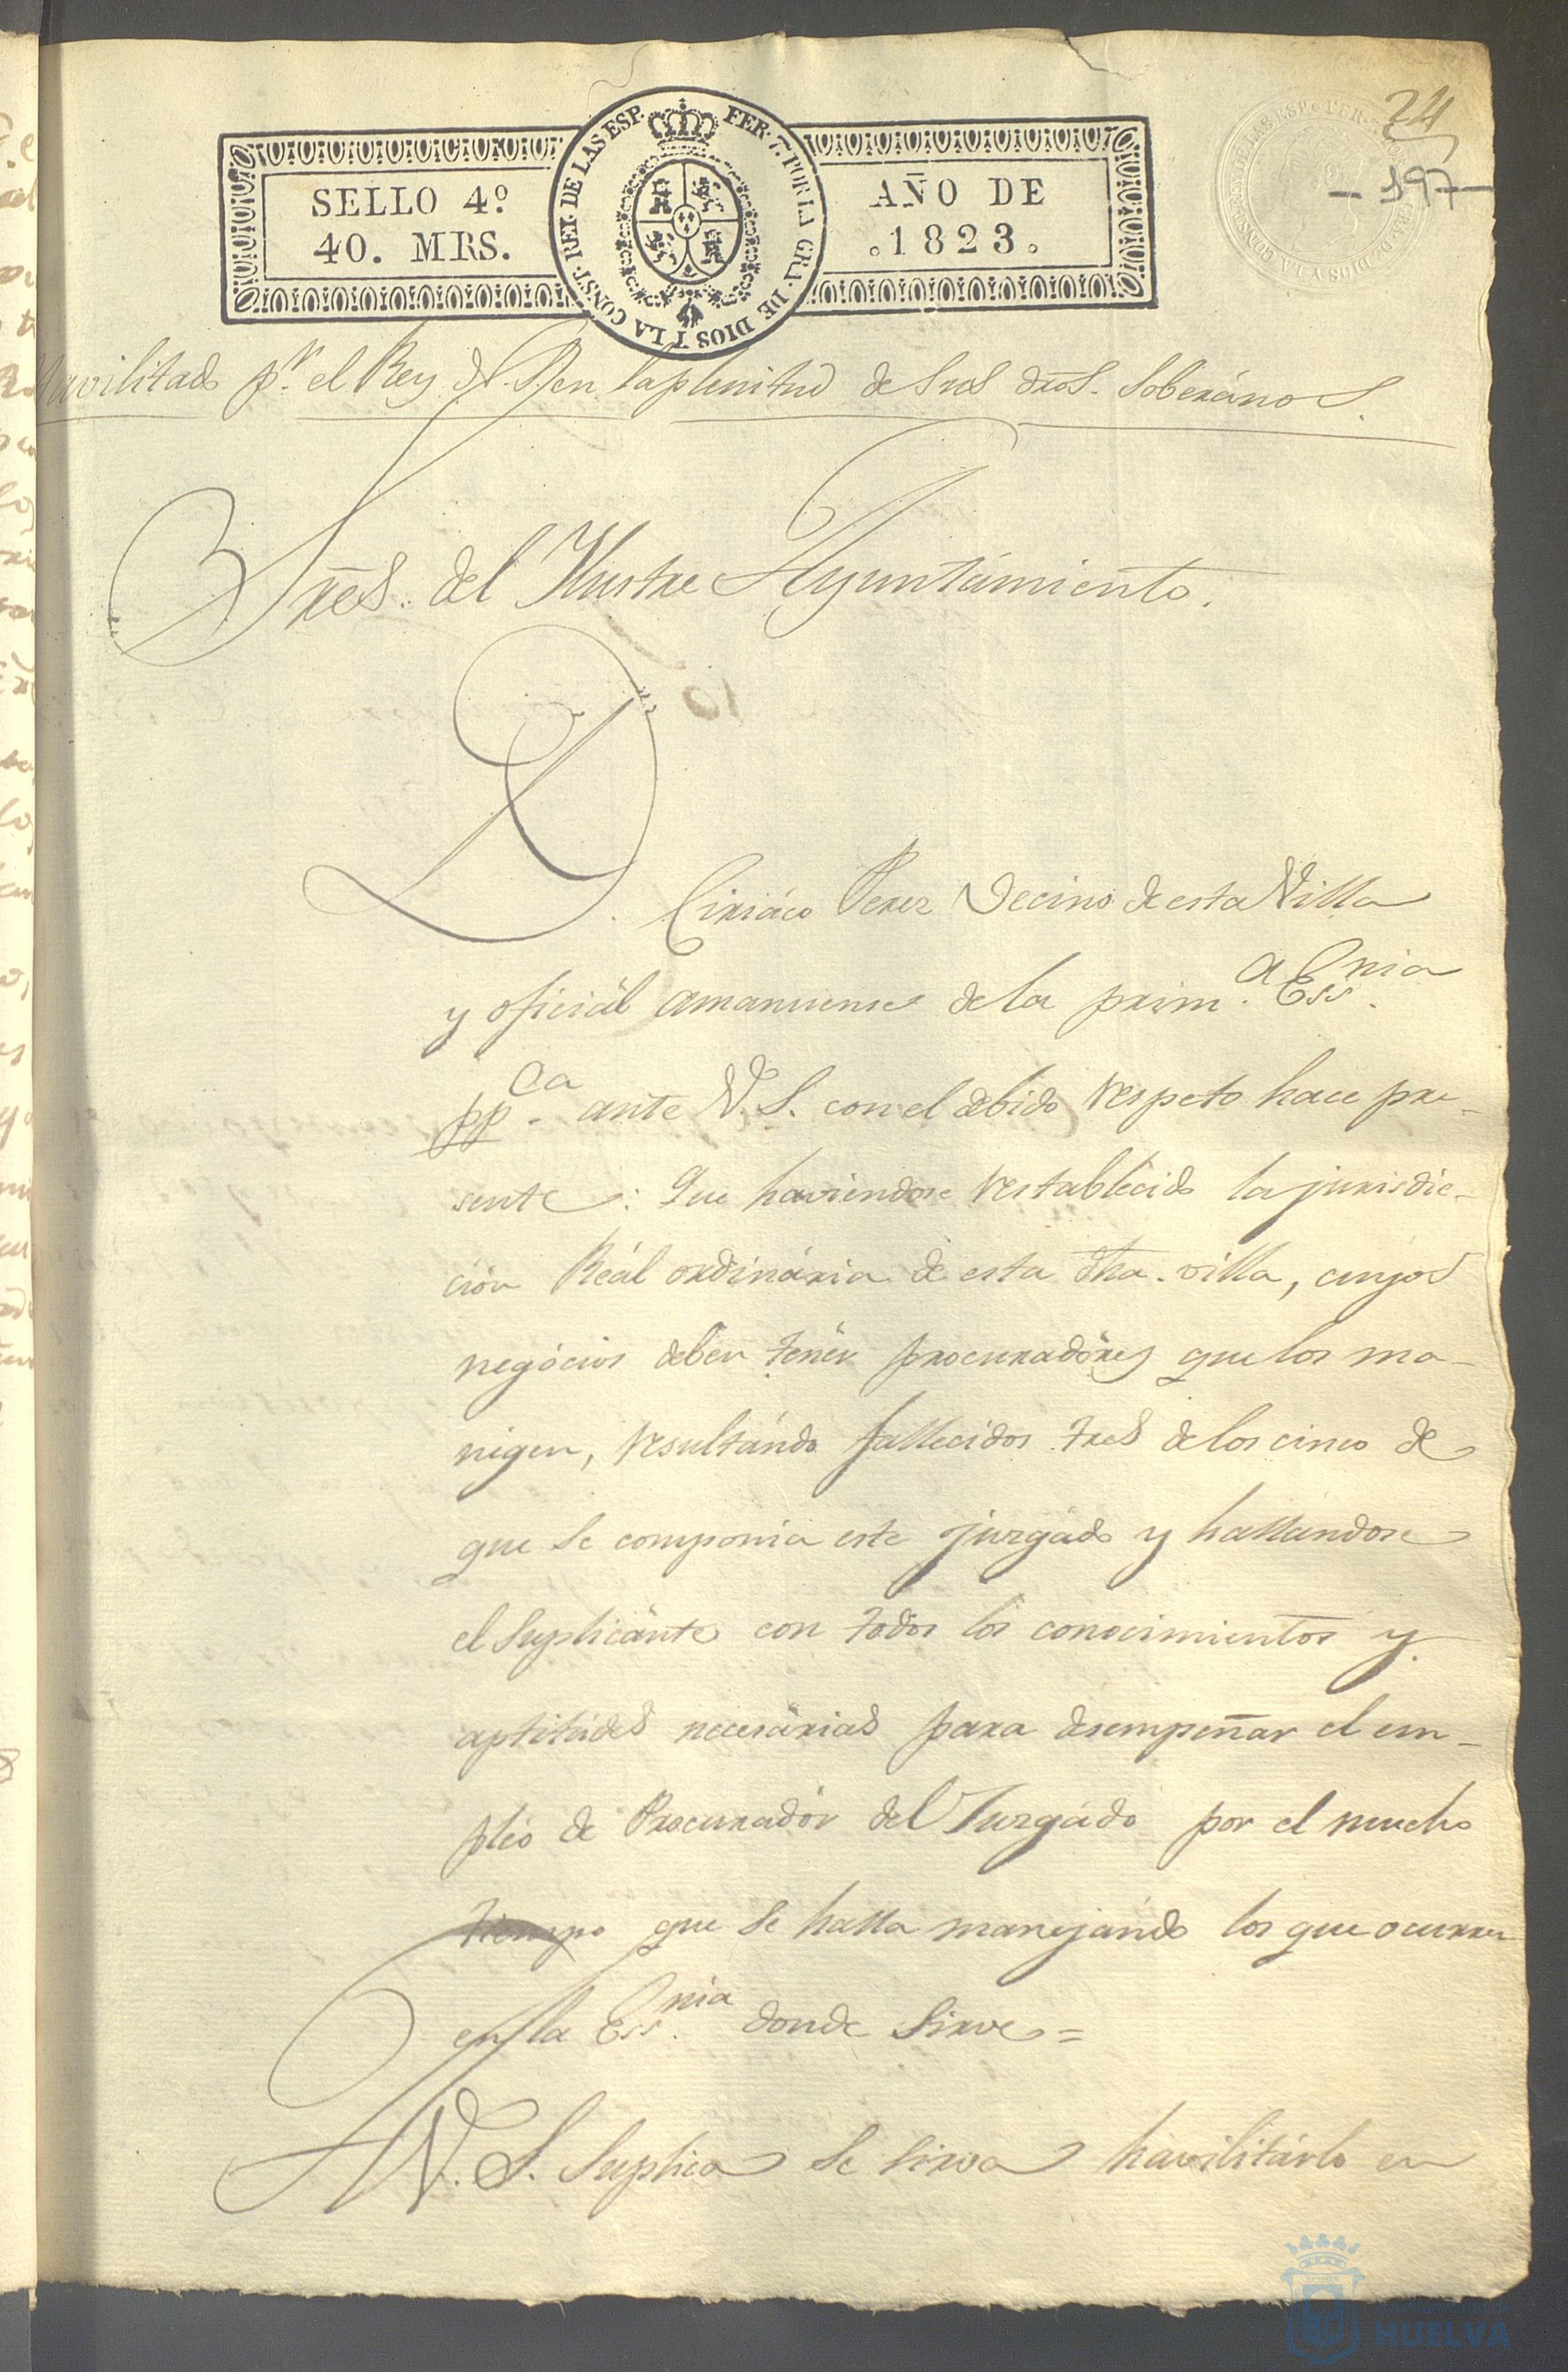 24
- 197 -
SELLO 4º
40. MRS.
FER. 7. POR LA GRA. DE DIOS Y LA CONST. REY. DE LAS ESP.
AÑO DE
.1823.
Havilitado pr. el Rey N. S. en la plenitud de sus dros. Soberános.
Sres. del Ilustre Ayuntámiento.
D. Ciriáco Perez Vecino de esta Villa
y oficiál amanuense de la prim.a Ess.nia
pp.ca ante V. S. con el debido respeto hace pre-
sente: Que haviendose restablecido la jurisdic-
ción Reál ordinária de esta dha. villa, cuyos
negócios deben tenér procuradóres que los ma-
nigen, resultándo fallecidos tres de los cinco de
que se componia este juzgádo y hallandose
el Suplicánte con todos los conocimientos y
aptitúdes necesárias para desempeñar el em-
pléo de Procuradór del Juzgádo por el mucho
tiempo que se halla manejándo los que ocurren
en la Ess.nia donde sirve =
A V. S. Suplica se sirva havilitárlo en
HUELVA